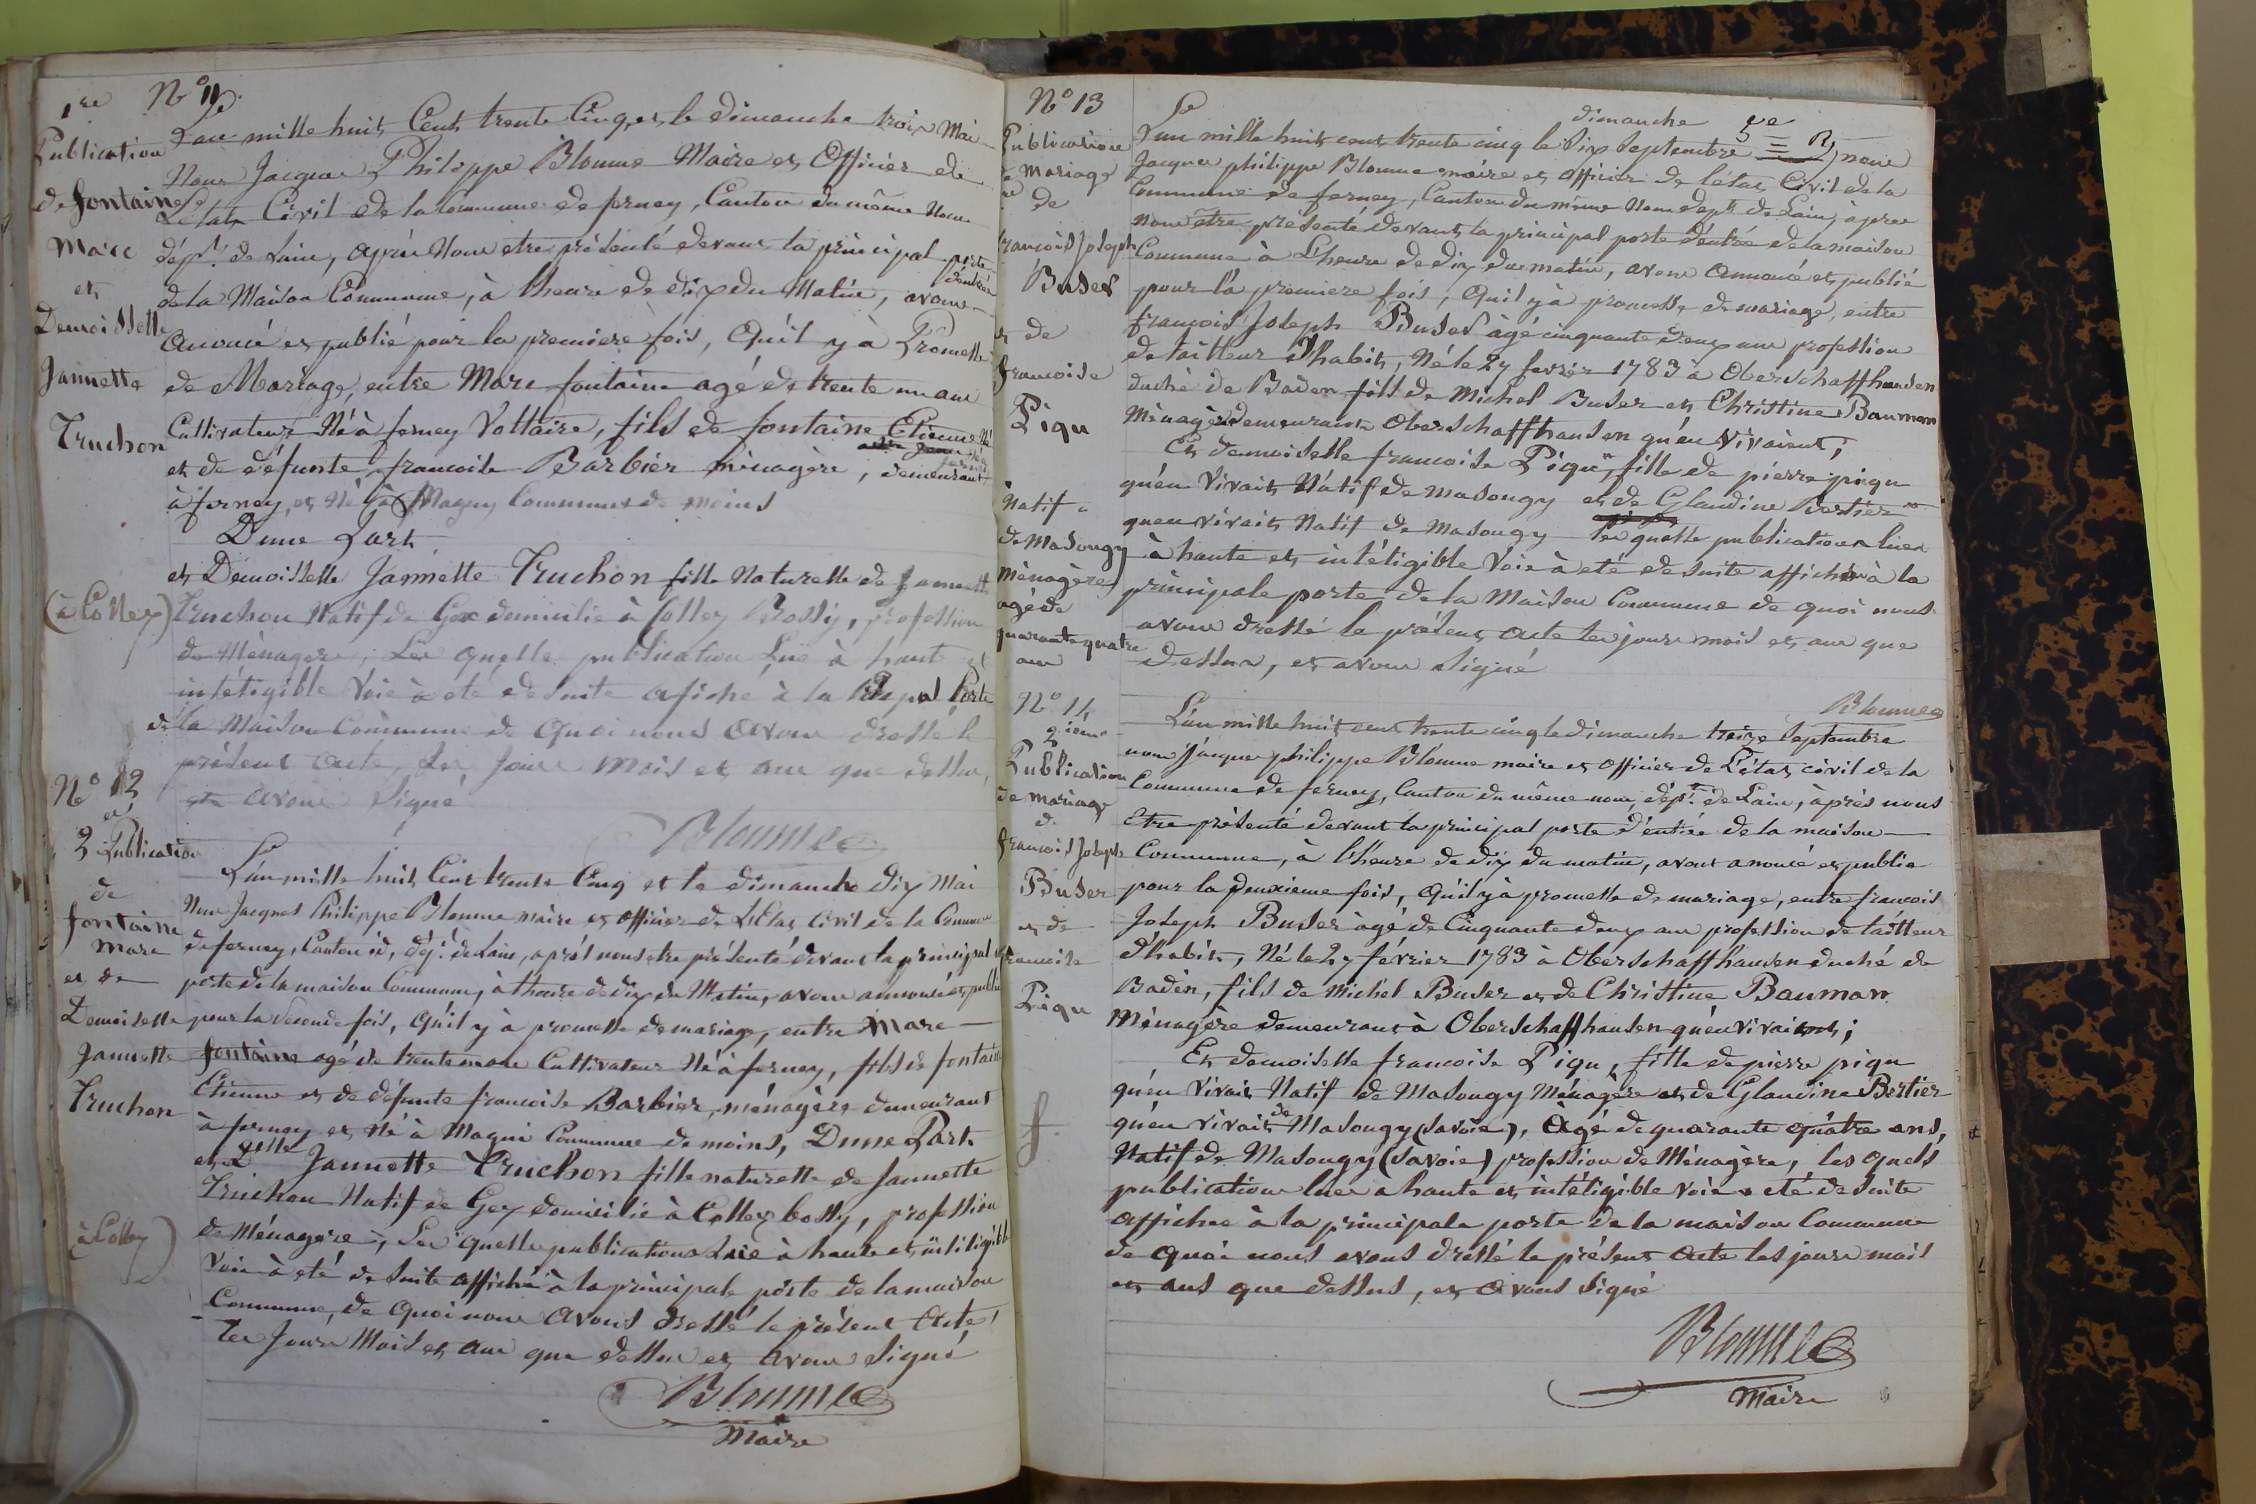 N° 11
1re
Publication
de fontaine
Marc
et
Demoisselle
Jannette
Truchon
(à Collex)
L'an mille huit Cent trente Cinq, et le dimanche trois Mai
Nous Jacques Philippe Bloume Maire et Officier de
L'état Civil de la Commune de ferney, Canton du même Nom
dépt. de Lain, après Nous etre présenté devant la principal porte
d'entrée
de la Maison Commune, à lheure de dix du Matin, avons
Anoncé et publié pour la premiere fois, Qu'il y à Promesse
de Mariage, entre Marc fontaine agé de trente un ans
Cultivateur Né à ferney Voltaire, fils de fontaine Etienne
et de défunte francoise Barbier ménagère, demeurant
à ferney, et Né à Magny Commune de moins
Dune Part
et Demoiselle Jannette Truchon fille Naturelle de Jannette
Truchon Natif de Gex domicilie à Collex Bossy, profession
de Ménagere, Les quelle publication Lue à haut et
intéligible Voie à eté de suite afiché à la Prpal Porte
de la Maison Commune de Quoi nous Avons dressé le
présent acte, Les Jours Mois et ans que dessus,
et avons Signé
Bloume
N° 12
2 Publication
de
fontaine
Marc
et de
Demoiselle
Jannette
Truchon
à Collex)
L'an mille huit Cent trente Cinq et le dimanche dix Mai
Nous Jacques Philippe Bloume maire et officier de L'Etat Civil de la Commune
de ferney, Canton id, dépt. de Lain, aprés nous etre présenté devant la principal
porte de la maison Commune, à lheure de dix du Matin, avons annoncé et publié
pour la seconde fois, Qu'il y à promesse de mariage, entre Marc
fontaine agé de trente un ans Cultivateur Né à ferney, fils de fontaine
Etienne et de défunte francoise Barbier, ménagère demeurant
à ferney et Né à Magni Commune de moins, Dune Part
et Delle Jannette Truchon fille naturelle de Jannette
Truchon Natif de Gex domicilié à Collex bossy, profession
de Ménagère, Les quelle publications Luie à haute et intéligible
Voie à eté de suite affiché à la principale porte de la maison
Commune, de quoi nous avons dressé le présent Acte
Les Jours Mois et ans que dessus et avons Signé
Bloume
Maire
N° 13
Publication
de mariage
de
francois Joseph
Buser
et de
francoise
Piqu
Natif
de Masougy
ménagère
agé de
quarante quatre
ans
dimanche
L'an mille huit cent trente cinq le Six Septembre nous
Jacques philippe Bloume maire et officier de l'état Civil de la
Commune de ferney, Canton du même Nom dept. de Lain, àpres
nous être présenté devant la principal porte d'entrée de la maison
Commune à L'heure de dix du matin, avons Annoncé et publié
pour la premiere fois, Qu'il y à promesse de mariage, entre
francois Joseph Buser àgé cinquante deux ans profession
de tailleur d'habits, Né le 27 fevrier 1783 à Oberschaffhausen
duché de Baden fils de Michel Buser et Christine Bauman
Ménagère demeurant Oberschaffhausen qu'en vivaient;
Et demoiselle francoise Piqu, fille de pierre piqu
qu'en Vivait Natif de Masougy et de Glaudine Bertier
quen vivait Natif de Masougy les quelle publications lues
à haute et intéligible Voie à eté de suite affichée à la
principale porte de la Maison Commune de quoi nous
avons dressé le présent acte les jours mois et ans que
dessus, et avons Signé
Bloume
N° 14
2ième
Publication
de mariage
de
francois Joseph
Buser
et de
francoise
Piqu
L'an mille huit cent trente cinq le dimanche treize Septembre
nous Jacques philippe Bloume maire et officier de L'état civil de la
Commune de ferney, Canton du même nom, dépt. de Lain, àprès nous
etre présenté devant la principal porte d'entrée de la maison
Commune, à l'heure de dix du matin, avons anoncé et publie
pour la deuxieme fois, Qu'il y à promesse de mariage, entre francois
Joseph Buser àgé de Cinquante deux ans profession de tailleur
d'habits, Né le 27 février 1783 à Oberschaffhausen duché de
Baden, fils de Michel Buser et de Christine Bauman
Ménagère demeurant à Oberschaffhausen qu'en vivaient;
Et demoiselle francoise Piqu, fille de pierre piqu
qu'en Vivait Natif de Masougy Ménagère et de Glaudine Bertier
qu'en vivait de Masougy (savoie), Agé de quarante quatre ans,
Natif de Masougy (savoie) profession de Ménagère, les quels
publication lue à haute et intéligible voie à eté de suite
affichee à la principale porte de la maison Commune
de quoi nous avons dressé le présent acte les jours mois
et ans que dessus, et avons Signé
Bloume
Maire